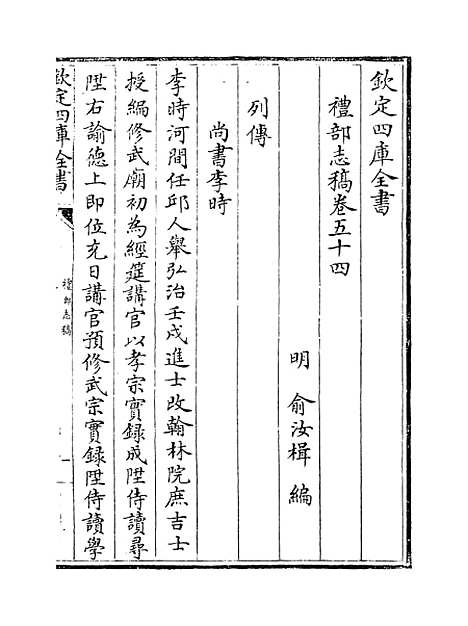 欽定四庫全書
禮部志稿卷五十四
明 俞汝楫 編
列傳
尚書李時
李時河間任邱人舉弘治壬戌進士改翰林院庶吉士
授編修武廟初為經筵講官以孝宗實錄成陞侍讀尋
陞右諭德上即位充日講官預修武宗實錄陞侍讀學
欽定四庫全書
禮部志稿
一